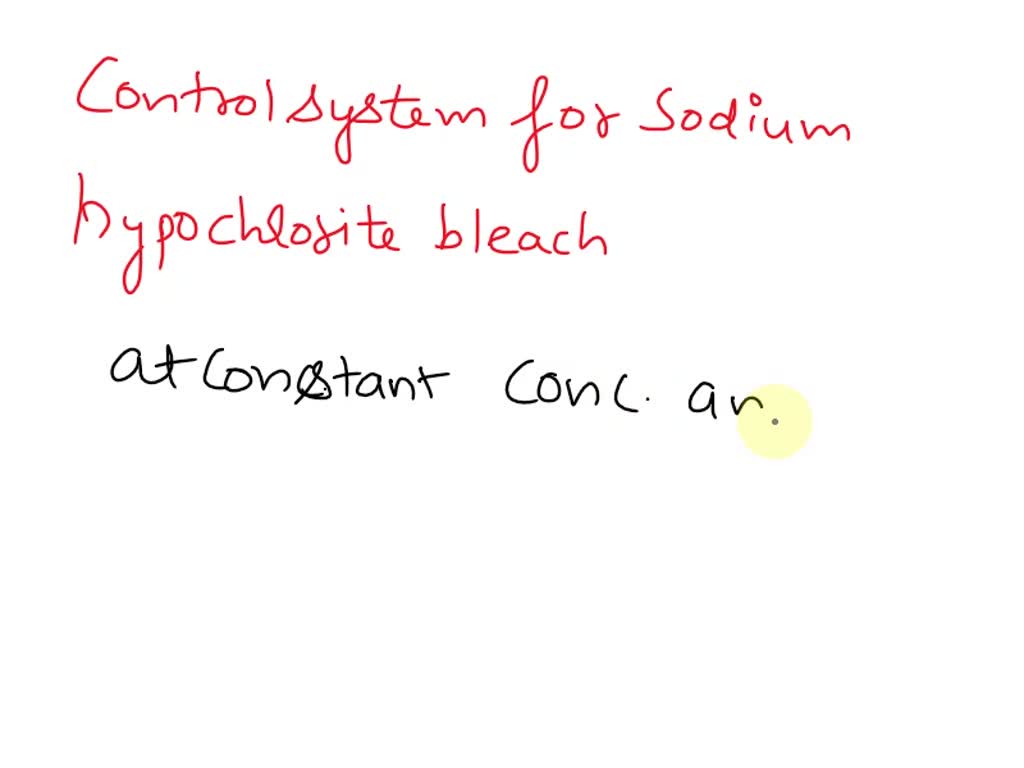 Control system for Sodium
hypochlorite bleach
at constant conc. an